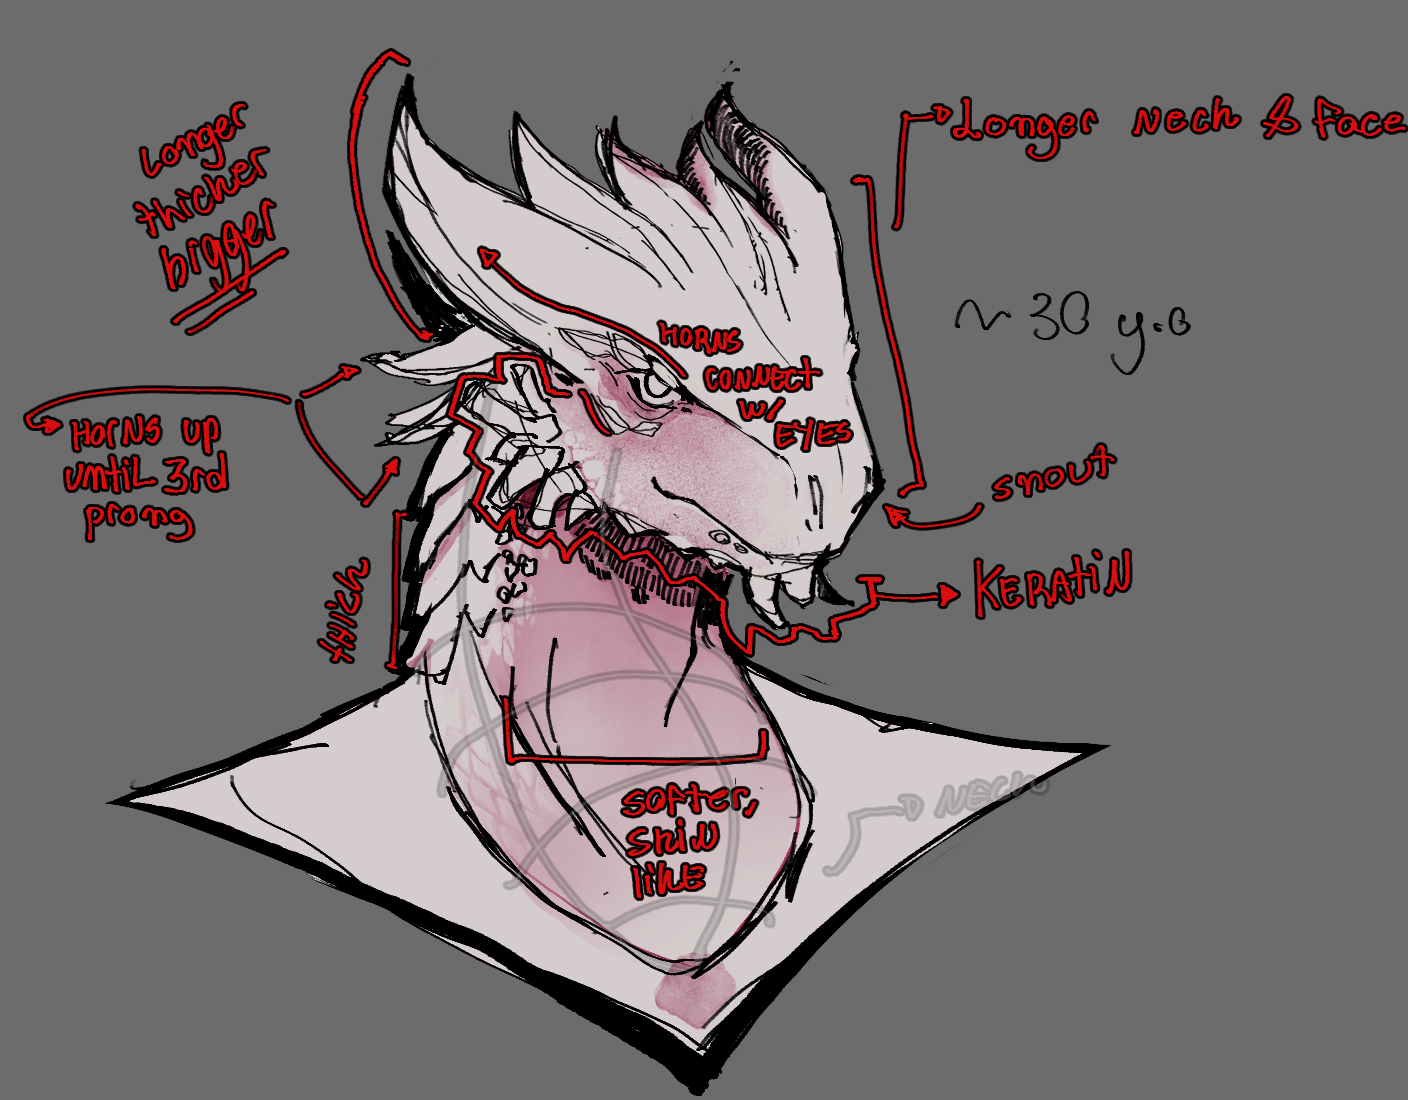 Longer
thicker
bigger
Longer Neck & Face
~ 30 y.o
HORNS
CONNECT
w/
EYES
HORNS up
until 3rd
prong
snout
KERATIN
thick
NECK
softer,
skin
like